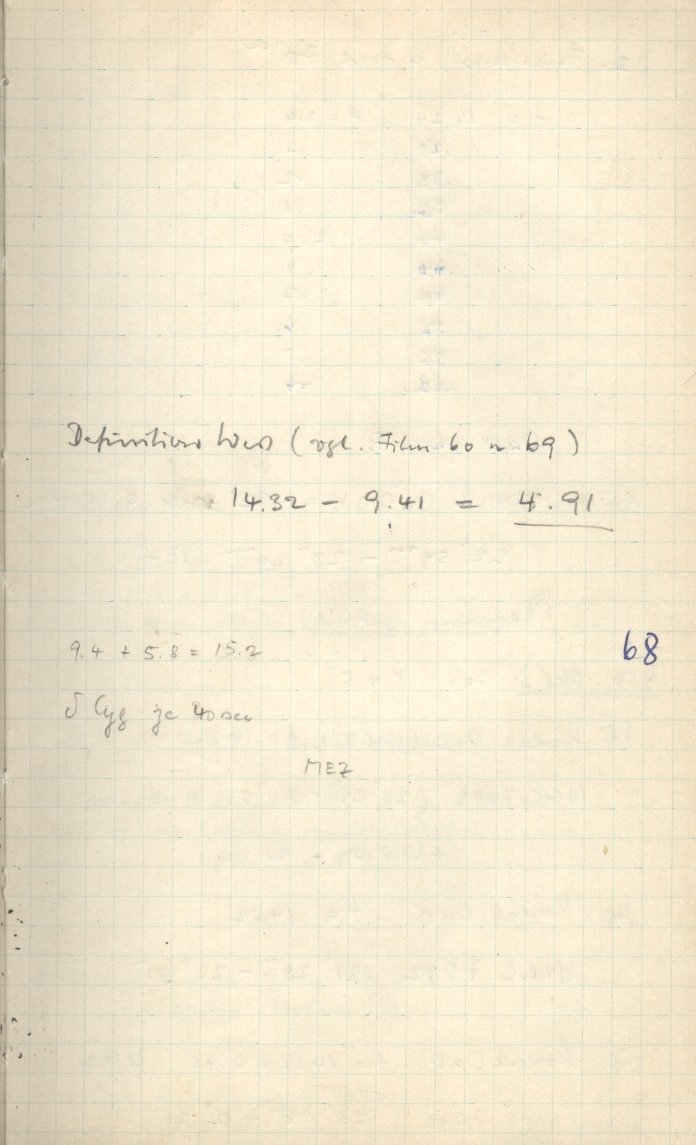 Definition (vgl. Film 60 u 69)
14.32 - 9.41 = 4.91
9.4 + 5.8 = 15.2
68
δ Cyg je 40 sec
MEZ